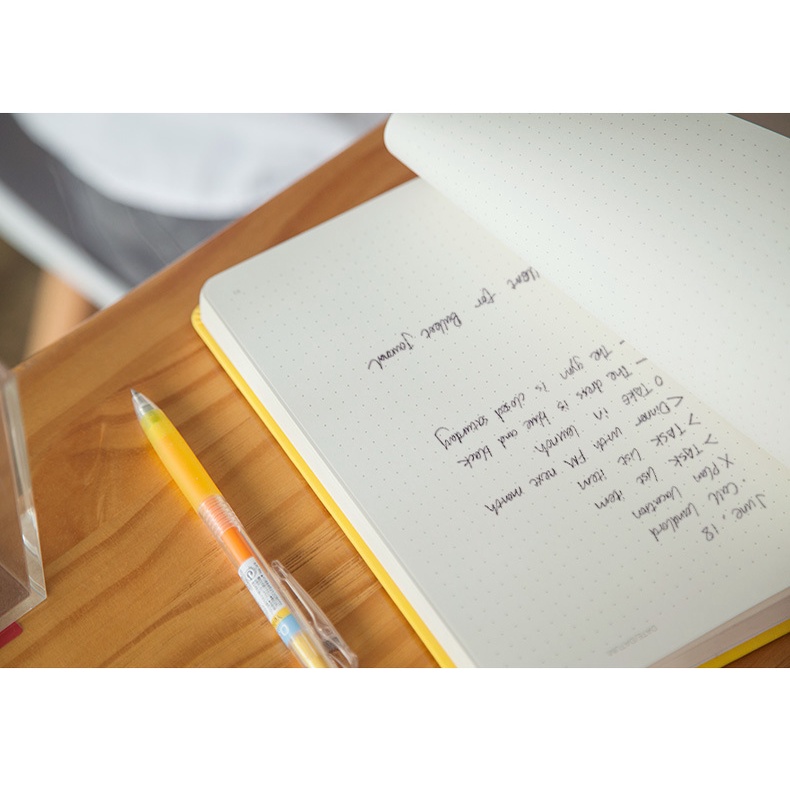 DATE/DATUM:
June . 18
. Call Landlord
X Plan Vacation
> TASK List item
> TASK List item
< Dinner with FM next month
O TAKE in launch
- The dress is blue and black
- The gym is closed saturday
for Bullet Journal